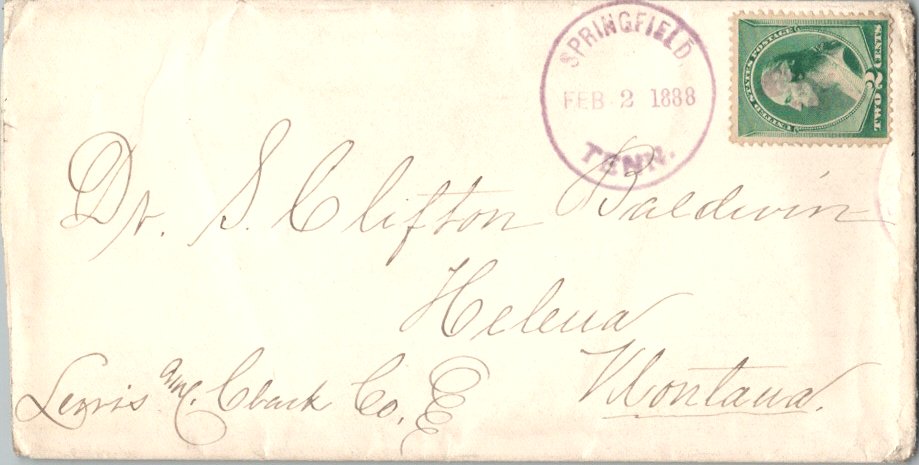 SPRINGFIELD,
FEB 2 1888
TENN.
UNITED STATES POSTAGE
2
TWO CENTS
Dr. S. Clifton Baldwin
Helena
Montana.
Lewis and Clark Co,